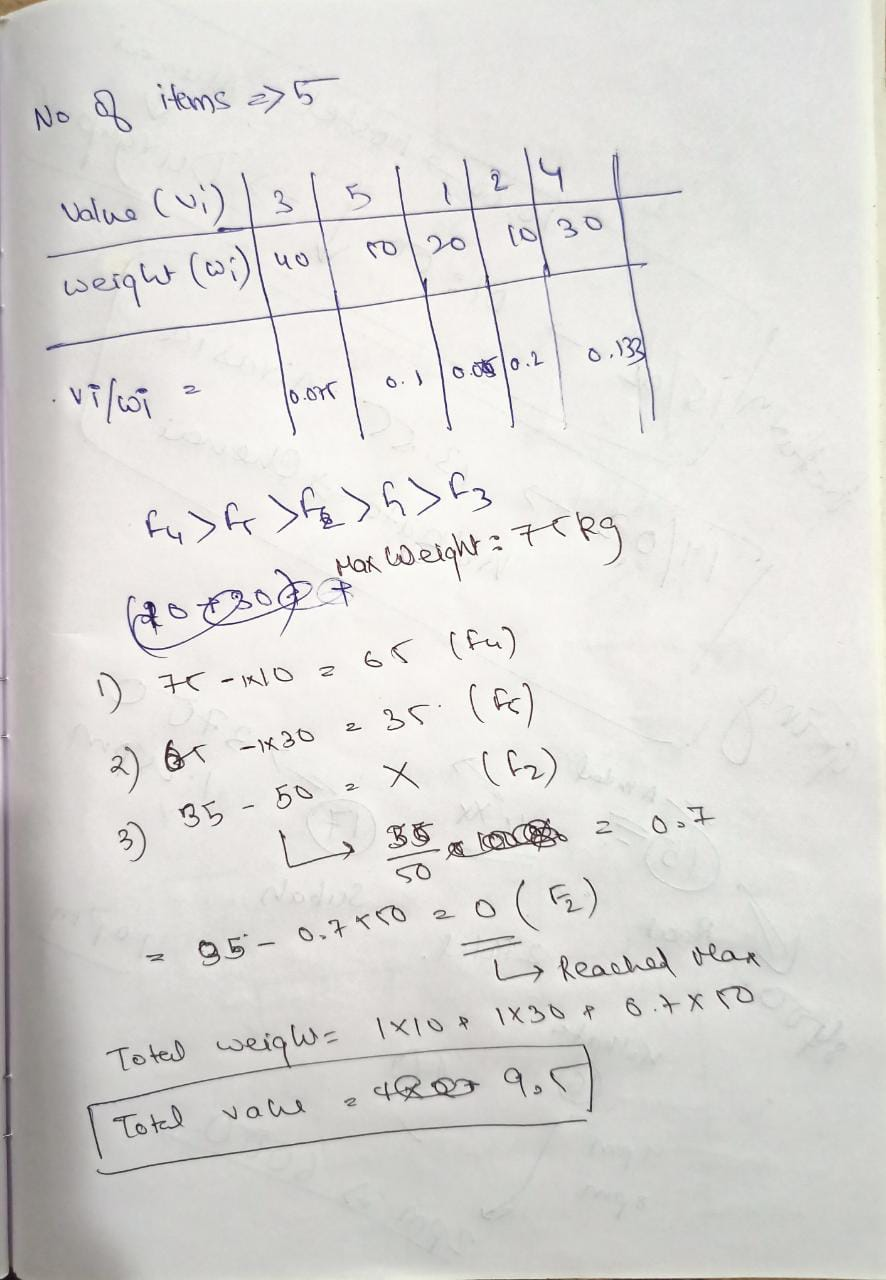 No of items => 5
Value (vi) | 3 | 5 | 1 | 2 | 4
weight (wi) | 40 | 50 | 20 | 10 | 30
vi/wi = | 0.075 | 0.1 | 0.05 | 0.2 | 0.133
f4 > f5 > f2 > f1 > f3
Max Weight = 75 kg
1) 75 - 1x10 = 65 (f4)
2) 65 - 1x30 = 35 (f5)
3) 35 - 50 = X (f2)
↳ 35/50 = 0.7
= 35 - 0.7x50 = 0 (F2)
↳ Reached Max
Total weight = 1x10 + 1x30 + 0.7x50
Total value = 9.5